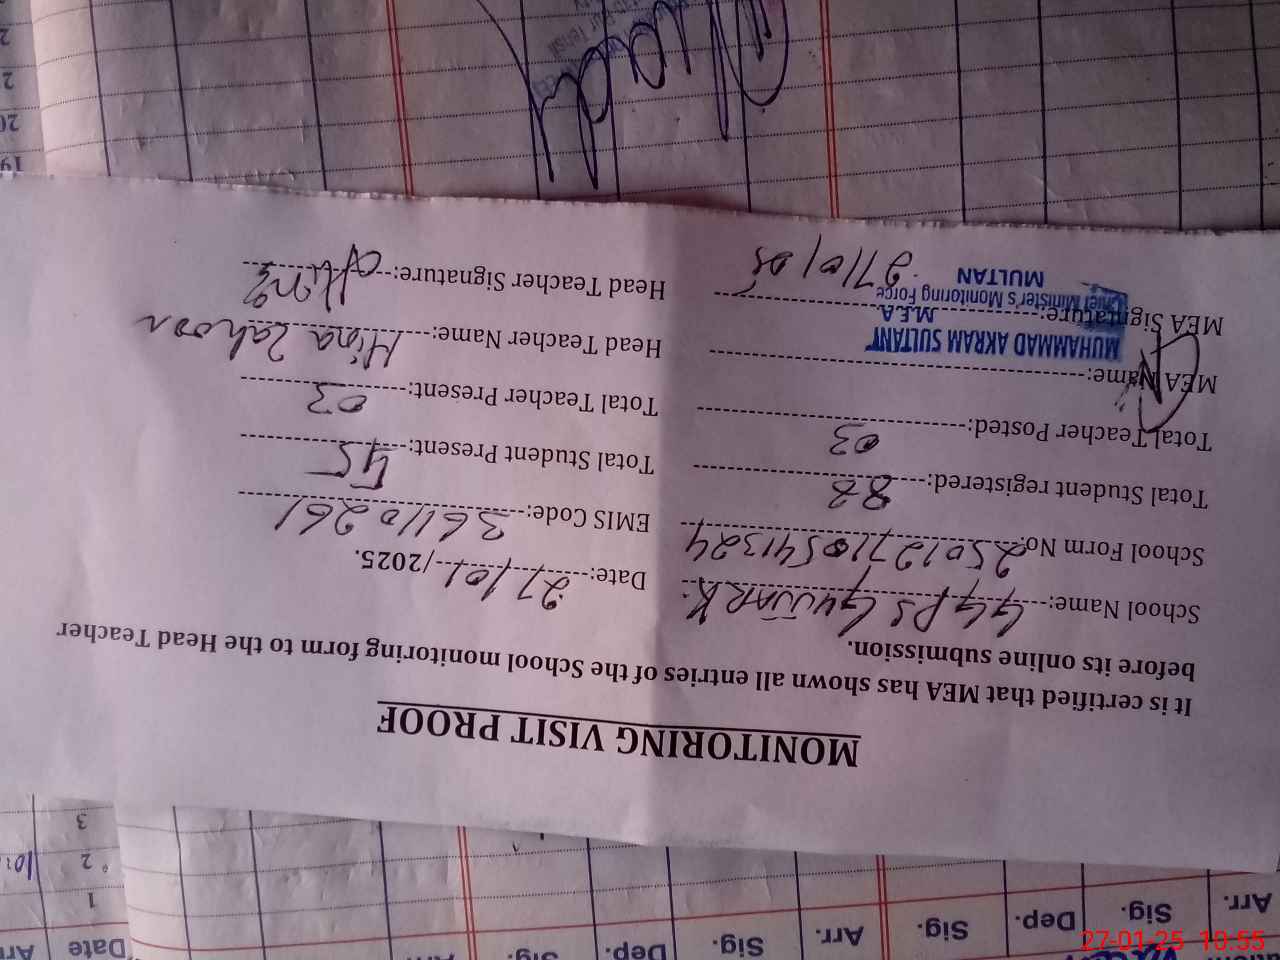 MONITORING VISIT PROOF
It is certified that MEA has shown all entries of the School monitoring form to the Head Teacher
before its online submission.
School Name: GGPS GUJJAR K. Date: 27/01/2025.
School Form No. 250127110541324 EMIS Code: 36110261
Total Student registered: 88 Total Student Present: 45
Total Teacher Posted: 03 Total Teacher Present: 03
MEA Name: Head Teacher Name: Hina Zahoor
MUHAMMAD AKRAM SULTANT
M.E.A
MEA Signature: Head Teacher Signature: Hina
Chief Minister's Monitoring Force
MULTAN
27/01/25
Date
Arr.
Sig.
Dep.
Sig.
Arr.
Sig.
Dep.
Sig.
Arr.
1
2
3
19
20
27-01-25 10:55